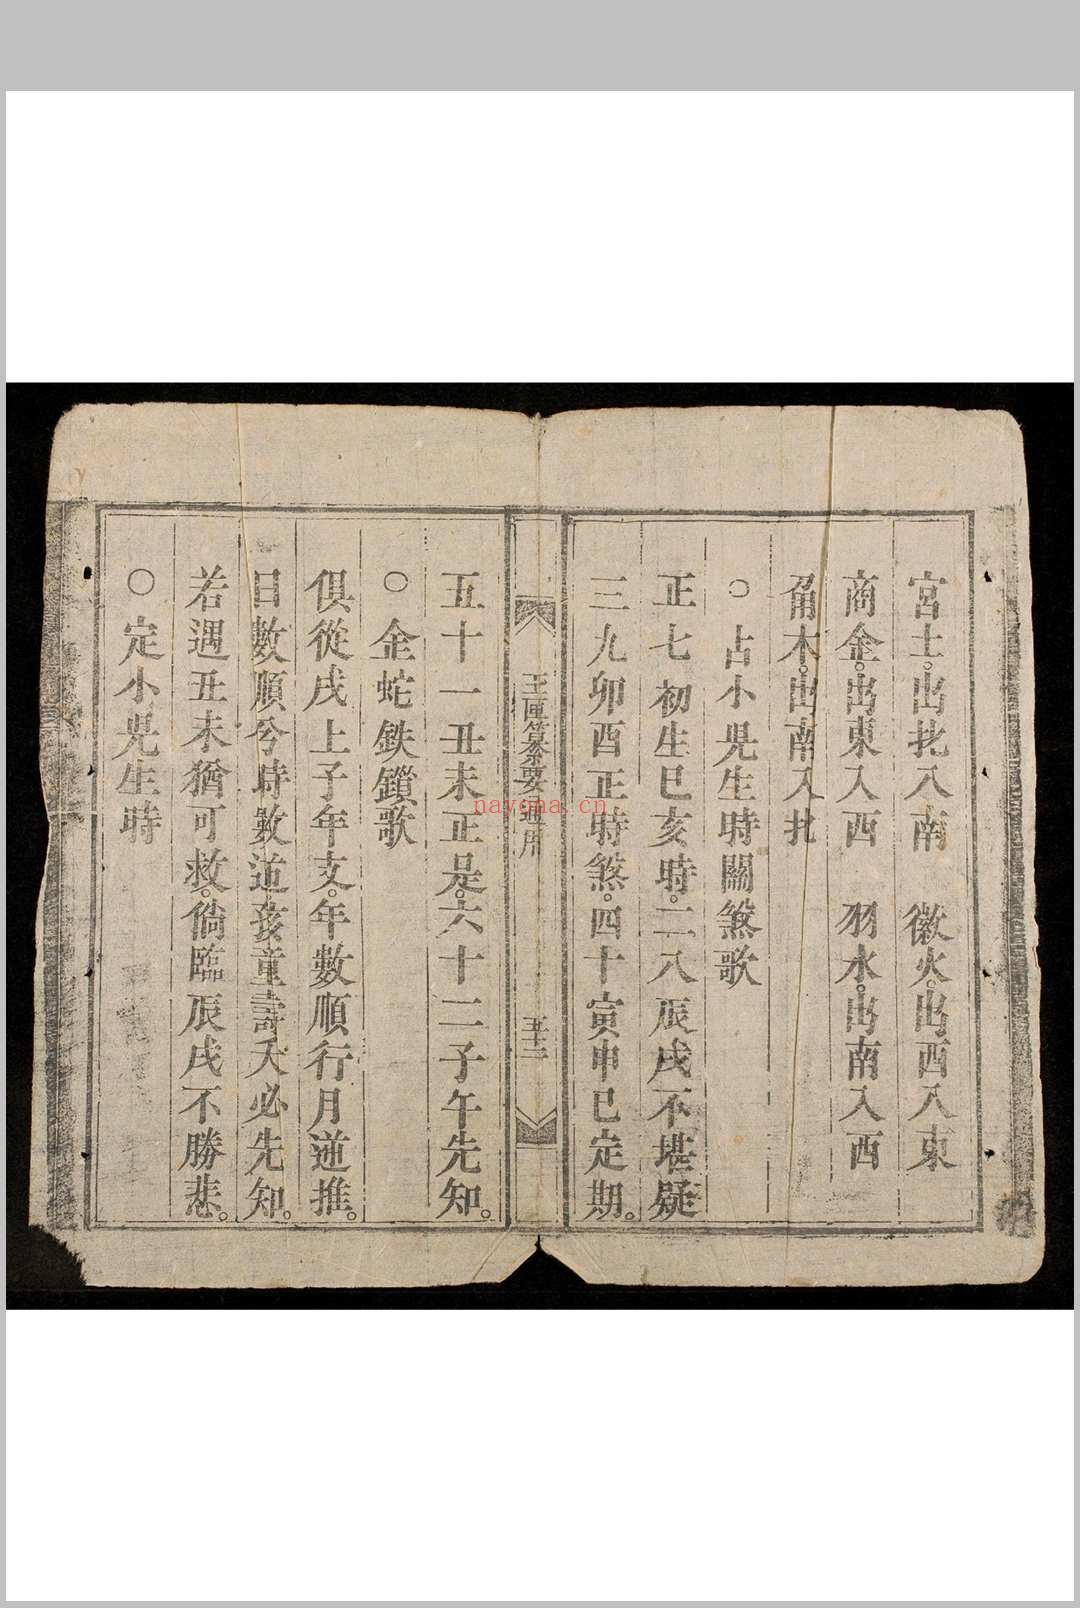 宮土。出北入南　徵火。出西入東
商金。出東入西　羽水。出南入西
角木。出南入北
○占小児生時關煞歌
正七初生巳亥時。二八辰戌不堪疑
三九卯酉正時煞。四十寅申已定期。
玉匣纂要通用　五十二
五十一丑未正是。六十二子午先知。
○金蛇鉄鎖歌
俱從戌上子年支。年數順行月逆推。
日數順兮時數逆孩童壽夭必先知。
若遇丑未猶可救。倘臨辰戌不勝悲。
○定小児生時
nayona.cn